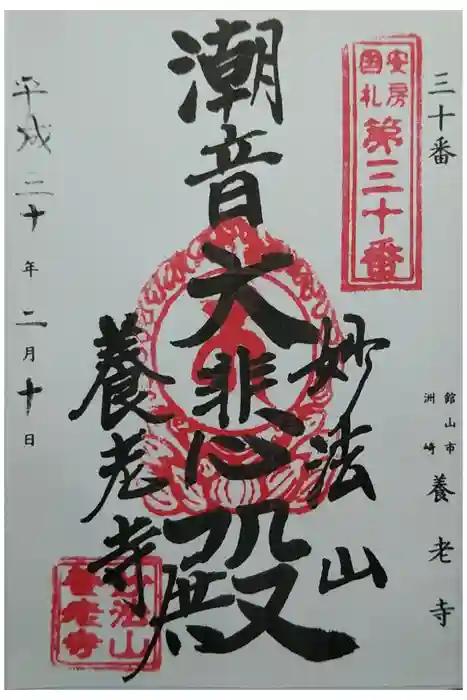 三十番
館山市
洲崎
養老寺
安房
国札
第三十番
妙法山
潮音
大悲殿
養老寺
妙法山
養老寺
平成三十年二月十日